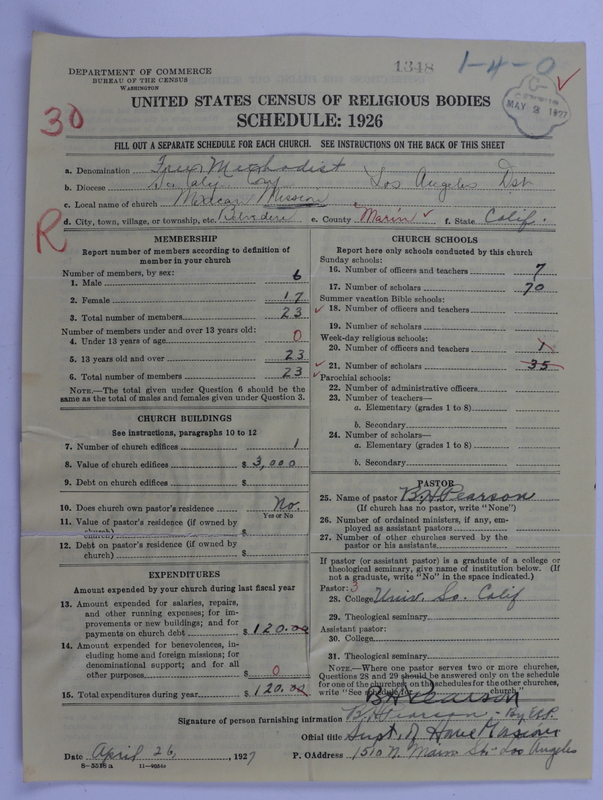 DEPARTMENT OF COMMERCE
BUREAU OF THE CENSUS
WASHINGTON
1348
1-4-0
MAY 3 1927
30
UNITED STATES CENSUS OF RELIGIOUS BODIES
SCHEDULE: 1926
FILL OUT A SEPARATE SCHEDULE FOR EACH CHURCH. SEE INSTRUCTIONS ON THE BACK OF THIS SHEET
a. Denomination Free Methodist
b. Diocese So. Calif. Conf Los Angeles Dist
c. Local name of church Mexican Mission
d. City, town, village, or township, etc. Belvedere e. County Marin f. State Calif.
R
MEMBERSHIP
Report number of members according to definition of
member in your church
Number of members, by sex:
1. Male 6
2. Female 17
3. Total number of members 23
Number of members under and over 13 years old:
4. Under 13 years of age 0
5. 13 years old and over 23
6. Total number of members 23
NOTE.—The total given under Question 6 should be the
same as the total of males and females given under Question 3.
CHURCH BUILDINGS
See instructions, paragraphs 10 to 12
7. Number of church edifices 1
8. Value of church edifices $ 3,000
9. Debt on church edifices $
10. Does church own pastor's residence No.
Yes or No
11. Value of pastor's residence (if owned by
church) $
12. Debt on pastor's residence (if owned by
church) $
EXPENDITURES
Amount expended by your church during last fiscal year
13. Amount expended for salaries, repairs,
and other running expenses; for im-
provements or new buildings; and for
payments on church debt $ 120.00
14. Amount expended for benevolences, in-
cluding home and foreign missions; for
denominational support; and for all
other purposes $ 0
15. Total expenditures during year $ 120.00
CHURCH SCHOOLS
Report here only schools conducted by this church
Sunday schools:
16. Number of officers and teachers 7
17. Number of scholars 70
Summer vacation Bible schools:
18. Number of officers and teachers
19. Number of scholars
Week-day religious schools:
20. Number of officers and teachers 1
21. Number of scholars 35
Parochial schools:
22. Number of administrative officers
23. Number of teachers—
a. Elementary (grades 1 to 8)
b. Secondary
24. Number of scholars—
a. Elementary (grades 1 to 8)
b. Secondary
PASTOR
25. Name of pastor B.H. Pearson
(If church has no pastor, write "None")
26. Number of ordained ministers, if any, em-
ployed as assistant pastors
27. Number of other churches served by the
pastor or his assistants
If pastor (or assistant pastor) is a graduate of a college or
theological seminary, give name of institution below. (If
not a graduate, write "No" in the space indicated.)
Pastor: 3
28. College Univ. So. Calif
29. Theological seminary
Assistant pastor:
30. College
31. Theological seminary
NOTE.—Where one pastor serves two or more churches,
Questions 28 and 29 should be answered only on the schedule
for one of the churches; on the schedules for the other churches,
write "See schedule for church."
B H Pearson
Signature of person furnishing information B. H. Pearson - By
Official title Supt. of Home Missions
Date April 26, 1927 P. O. Address 1510 N. Main St. Los Angeles
8-5518a 11-9054